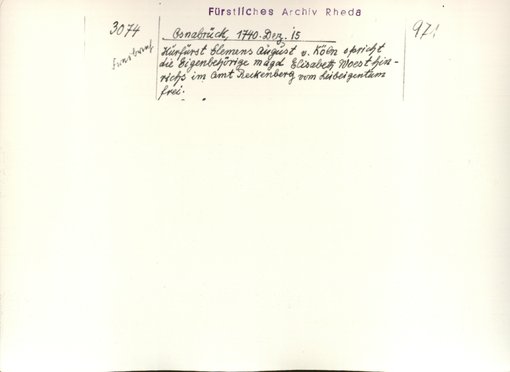 Fürstliches Archiv Rheda
3074
Osnabrück, 1740 Dez. 15
971
Kurfürst Clemens August v. Köln spricht
die Eigenbehörige magd Elisabeth Woesthin-
richs im Amt Reckenberg vom Leibeigentum
frei.